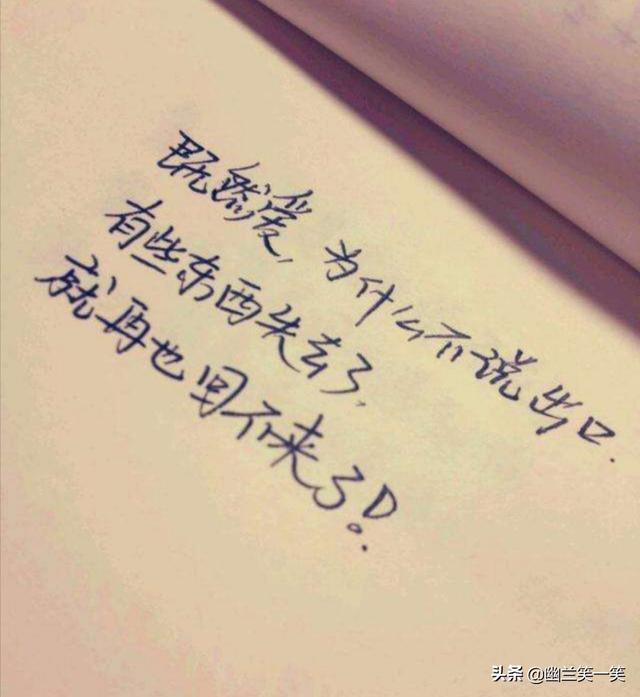 既然爱，为什么不说出口.
有些东西失去了,
就再也回不来了!
头条 @幽兰笑一笑